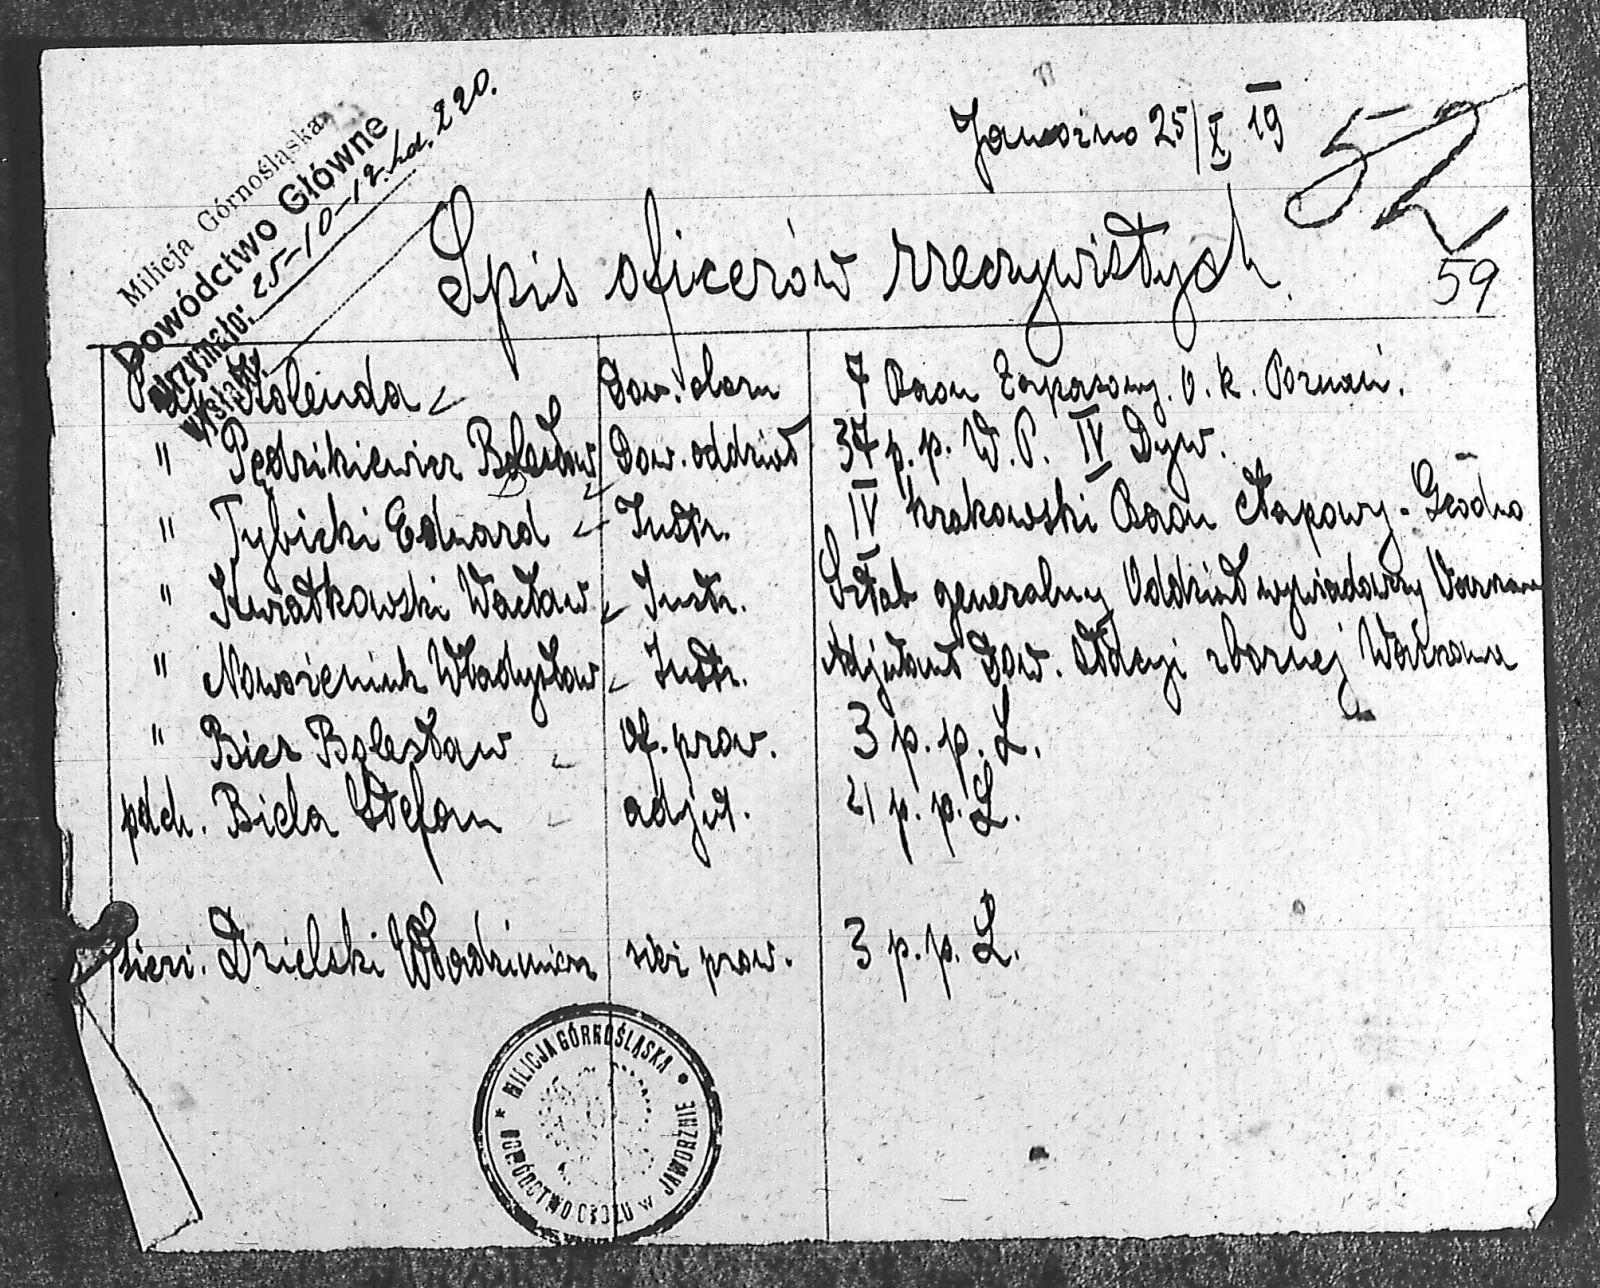 Milicja Górnośląska
Dowództwo Główne
Otrzymało: 25-10-19. Ld. 220.
Wysłało:
Jaworzno 25/X 19
52
59
Spis oficerów rzeczywistych
Kolenda Dow. obozu 7 Baon Zapasowy. O. K. Poznań.
" Pędzikiewicz Bolesław Dow. oddział 37 p. p. W. P. IV Dyw.
" Tybicki Eduard Instr. IV krakowski Baon etapowy - Grodno
" Kwiatkowski Wacław Instr. Sztab generalny Oddział wywiadowczy Warszawa
" Nowozieniuk Władysław Instr. Adjutant Dow. stacyi zbornej Warszawa
" Bier Bolesław Of. prow. 3 p. p. L.
pdch. Biela Stefan adjut. 4 p. p. L.
sierż. Dzielski Włodzimierz sierż prow. 3 p. p. L.
MILICJA GÓRNOŚLĄSKA
DOWÓDZTWO OBOZU w JAWORZNIE